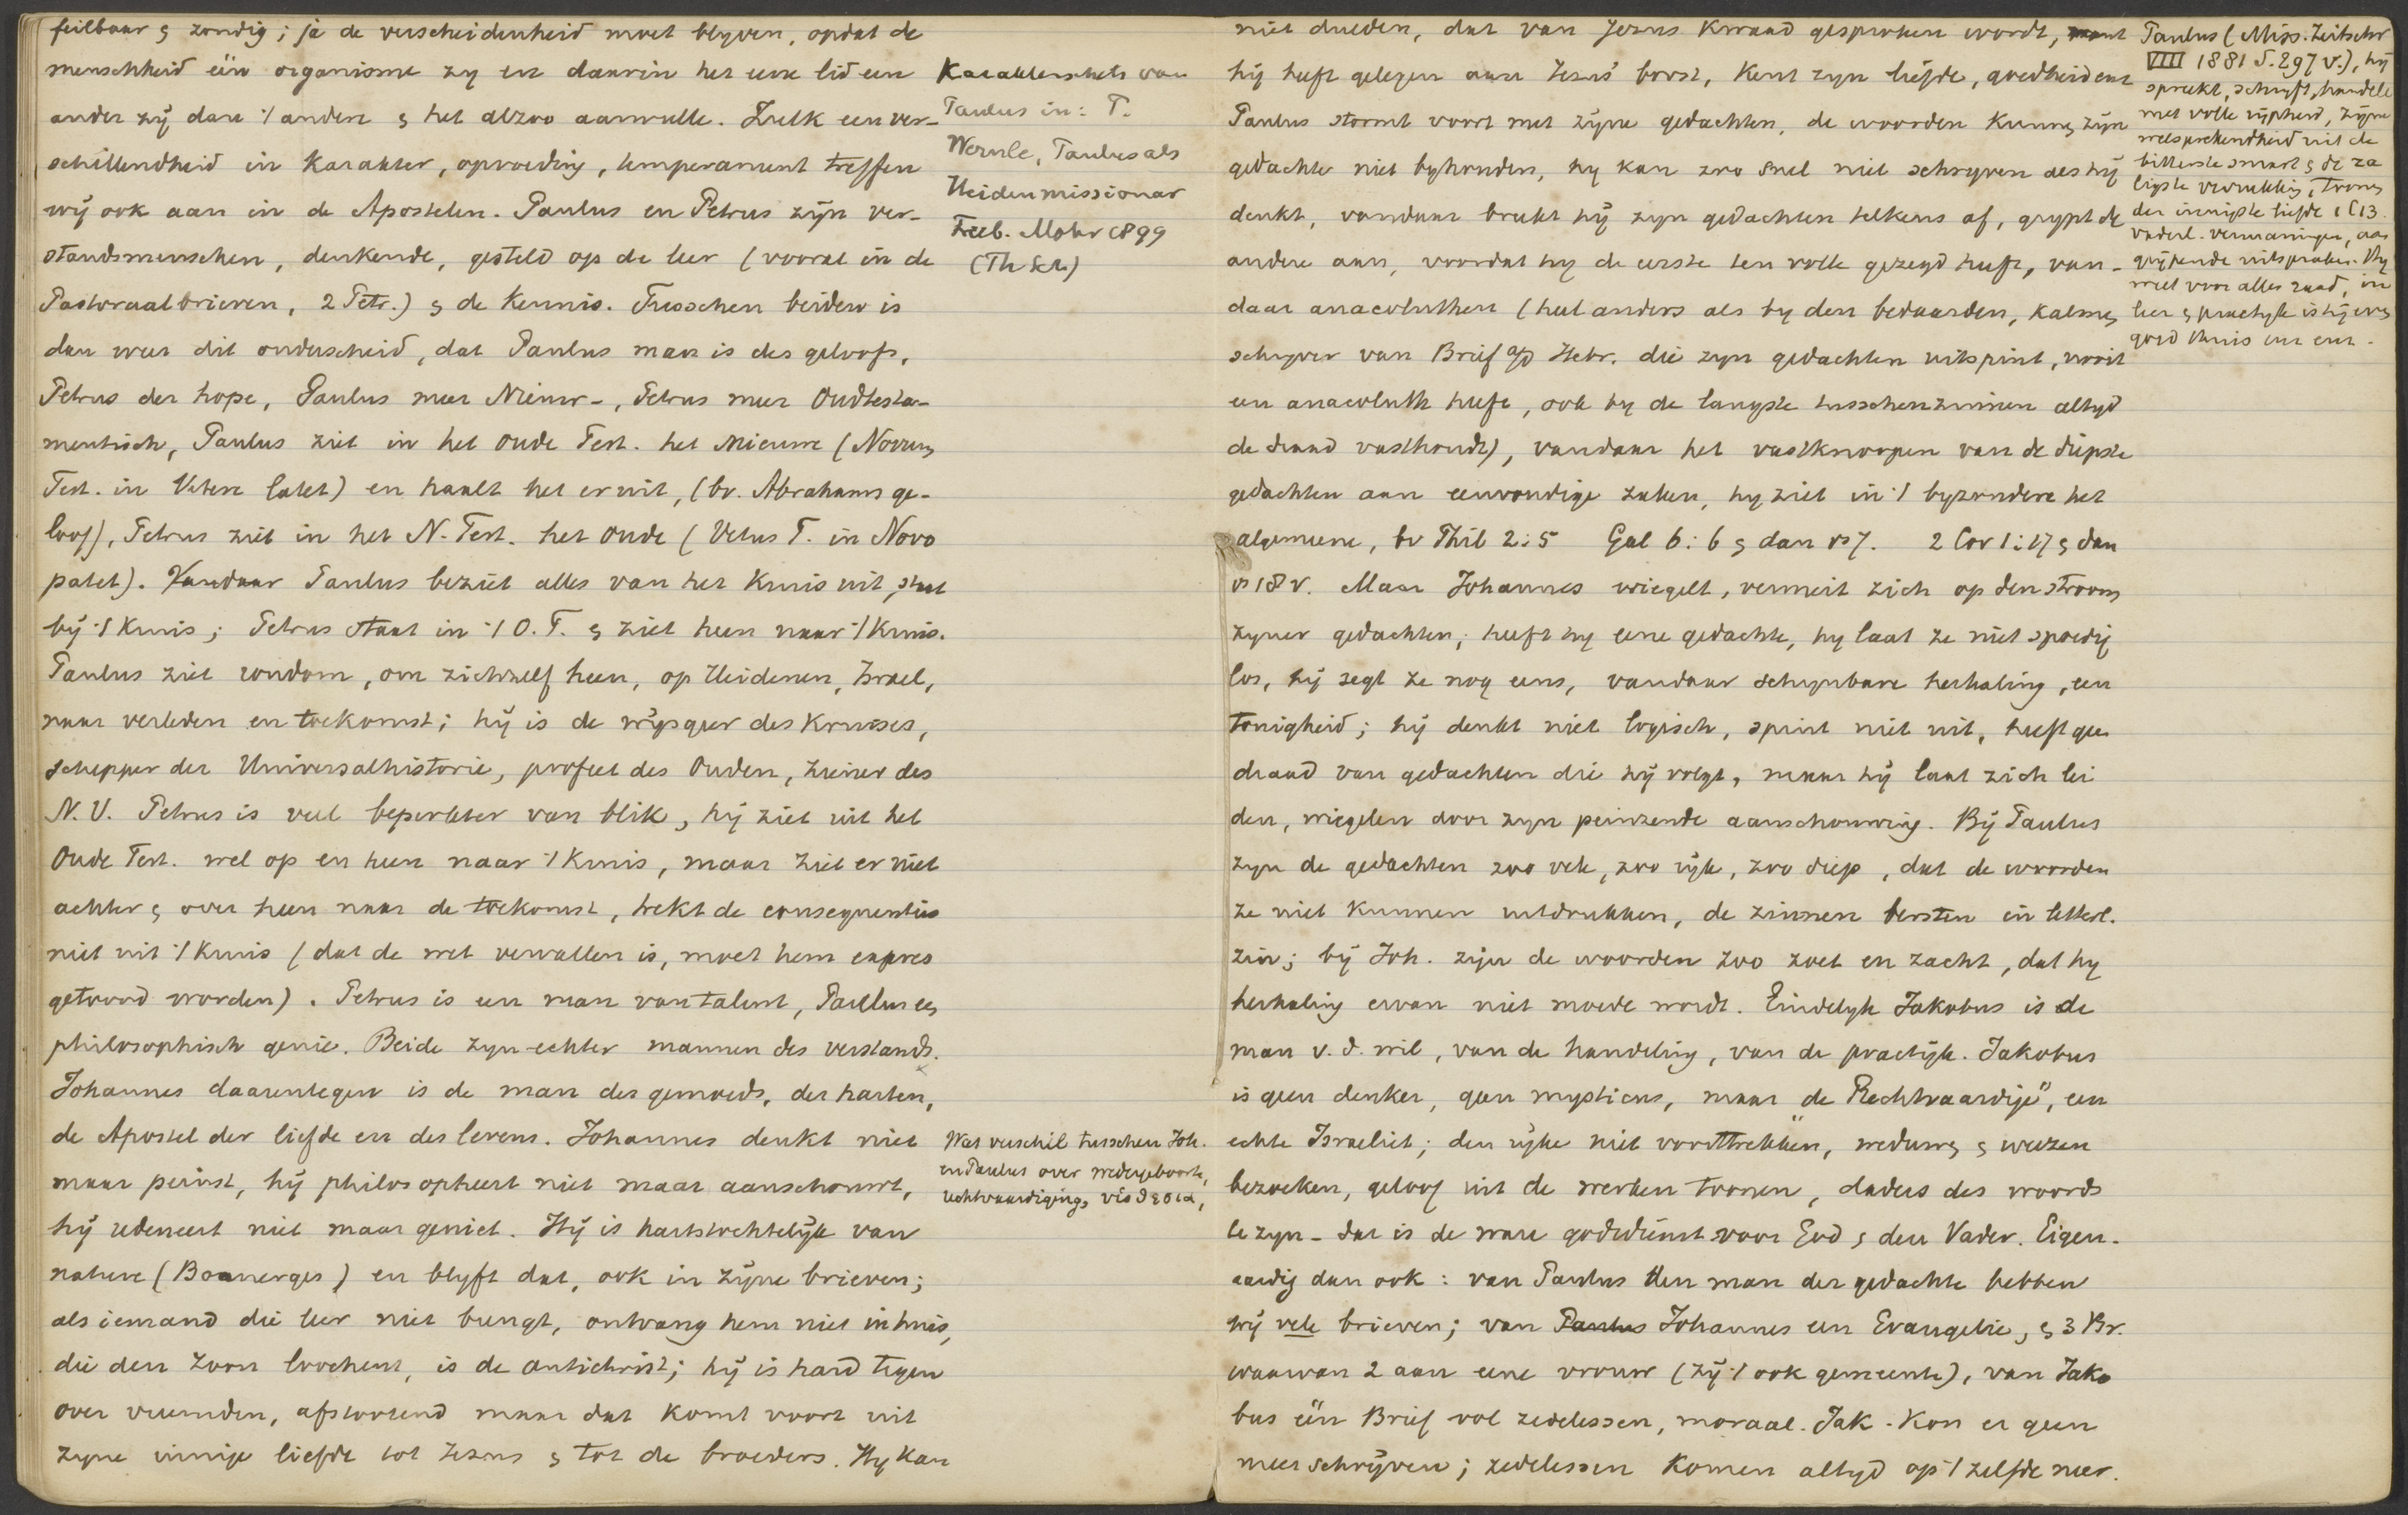 feilbaar & zondig; ja de verscheidenheid moet blyven, opdat de
menschheid één organisme zy en daarin het eene lid een
ander zÿ dan 't andere & het alzoo aanvulle. Zulk een ver-
schillendheid in karakter, opvoeding, temperament treffen
wÿ ook aan in de Apostelen. Paulus en Petrus zÿn ver-
standsmenschen, denkende, gesteld op de leer (vooral in de
Pastoraalbrieven, 2 Petr.) & de kennis. Tusschen beiden is
dan weer dit onderscheid, dat Paulus man is des geloofs,
Petrus der hope, Paulus meer Nieuw-, Petrus meer Oudtesta-
mentisch, Paulus ziet in het Oude Test. het Nieuwe (Novum
Test. in Vetere latet) en haalt het er uit, (bv. Abrahams ge-
loof), Petrus ziet in het N. Test. het Oude (Vetus T. in Novo
patet). Vandaar Paulus beziet alles van het Kruis uit, staat
bÿ 't Kruis; Petrus staat in 't O.T. & ziet heen naar 't Kruis.
Paulus ziet rondom, om zichzelf heen, op Heidenen, Israel,
naar verleden en toekomst; hÿ is de wÿsgeer des Kruises,
schepper der Universalhistorie, profeet des Ouden, ziener des
N.V. Petrus is veel beperkter van blik, hÿ ziet uit het
Oude Test. wel op en heen naar 't Kruis, maar ziet er niet
achter & over heen naar de toekomst, trekt de consequenties
niet uit 't Kruis (dat de wet vervallen is, moet hem expres
getoond worden). Petrus is een man van talent, Paulus een
philosophisch genie. Beide zyn echter mannen des verstands.
Johannes daarentegen is de man des gemoeds, des harten,
de Apostel der liefde en des levens. Johannes denkt niet
maar peinst, hÿ philosopheert niet maar aanschouwt,
hÿ redeneert niet maar geniet. Hÿ is hartstochtelÿk van
nature (Boanerges) en blyft dat, ook in zÿne brieven;
als iemand die leer niet brengt, ontvang hem niet in huis,
die den Zoon loochent, is de antichrist; hÿ is hard tegen
over vreemden, afstootend maar dat komt voort uit
zyne innige liefde tot Jezus & tot de broeders. Hy kan
Karakterschets van
Paulus in: P.
Wernle, Paulus als
Heidenmissionar
Freib. Mohr 1899
(Th Sch)
Wat verschil tusschen Joh.
en Paulus over wedergeboorte,
rechtvaardiging, υἱοθεσια,
niet dulden, dat van Jezus kwaad gesproken wordt, want
hÿ heeft gelegen aan Jezus' borst, kent zyn liefde, goedheid enz
Paulus stormt voort met zÿne gedachten, de woorden kunnen zÿn
gedachte niet byhouden, hy kan zoo snel niet schryven als hÿ
denkt, vandaar breekt hÿ zyn gedachten telkens af, grypt de
andere aan, voordat hy de eerste ten volle gezegd heeft, van-
daar anacoluthen (heel anders als by den bedaarden, kalmen
schryver van Brief a/d Hebr. die zyn gedachten uitspint, nooit
een anacoluth heeft, ook by de langste tusschenzinnen altyd
de draad vasthoudt), vandaar het vastknoopen van de diepste
gedachten aan eenvoudige zaken, hy ziet in 't byzondere het
algemeene, bv Phil 2:5 Gal 6:6 & dan vs 7. 2 Cor 1:17 & dan
vs 18 v. Maar Johannes wiegelt, vermeit zich op den stroom
zyner gedachten; heeft hy eene gedachte, hy laat ze niet spoedig
los, hÿ zegt ze nog eens, vandaar schynbare herhaling, een
tonigheid; hÿ denkt niet logisch, spint niet uit, heeft geen
draad van gedachten die hÿ volgt, maar hÿ laat zich lei
den, wiegelen door zyn peinzende aanschouwing. Bÿ Paulus
zyn de gedachten zoo vele, zoo rÿke, zoo diep, dat de woorden
ze niet kunnen uitdrukken, de zinnen bersten in letterl.
zin; bÿ Joh. zÿn de woorden zoo zoet en zacht, dat hy
herhaling ervan niet moede wordt. Eindelyk Jakobus is de
man v. d. wil, van de handeling, van de practÿk. Jakobus
is geen denker, geen mysticus, maar „de Rechtvaardige", een
echte Israeliet; den rÿke niet voorttrekken, weduwen & weezen
bezoeken, geloof uit de werken toonen, daders des woords
te zyn - dat is de ware godsdienst voor God & den Vader. Eigen-
aardig dan ook: van Paulus den man der gedachte hebben
wÿ vele brieven; van Paulus Johannes een Evangelie, & 3 Br.
waarvan 2 aan eene vrouw (zÿ 't ook gemeente), van Jako
bus één Brief vol zedelessen, moraal. Jak. kon er geen
meer schrÿven; zedelessen komen altyd op 't zelfde neer.
Paulus (Miss. Zeitschr
VIII 1881 S. 297 v.), hÿ
spreekt, schrÿft, handelt
met volle rÿpheid, zÿne
welsprekendheid uit de
bitterste smart & de za
ligste verrukking, tonen
der innigste liefde 1 C 13.
vaderl. vermaningen, aan
grÿpende uitspraken. Hy
weet voor alles raad, in
leer & practyk is hÿ even
goed thuis enz enz.